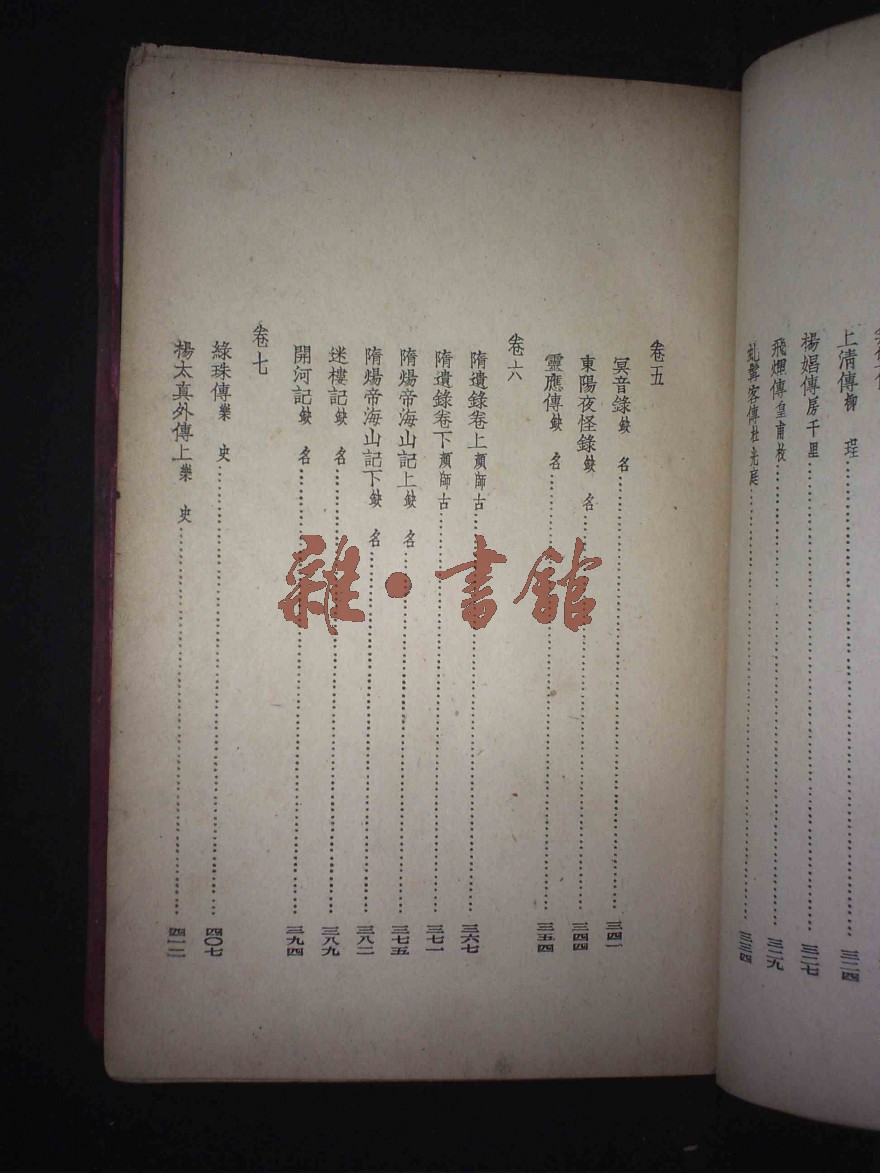 上淸傳柳 珵……三二四
楊娼傳房千里……三二七
飛烟傳皇甫枚……三二九
虬髯客傳杜光庭……三三四
卷五
冥音錄缺 名……三四一
東陽夜怪錄缺 名……三四四
靈應傳缺 名……三五四
卷六
隋遺錄卷上顏師古……三六七
隋遺錄卷下顏師古……三七一
隋煬帝海山記上缺 名……三七五
隋煬帝海山記下缺 名……三八二
迷樓記缺 名……三八九
開河記缺 名……三九四
卷七
綠珠傳樂 史……四〇七
楊太真外傳上樂 史……四一二
雜·書館